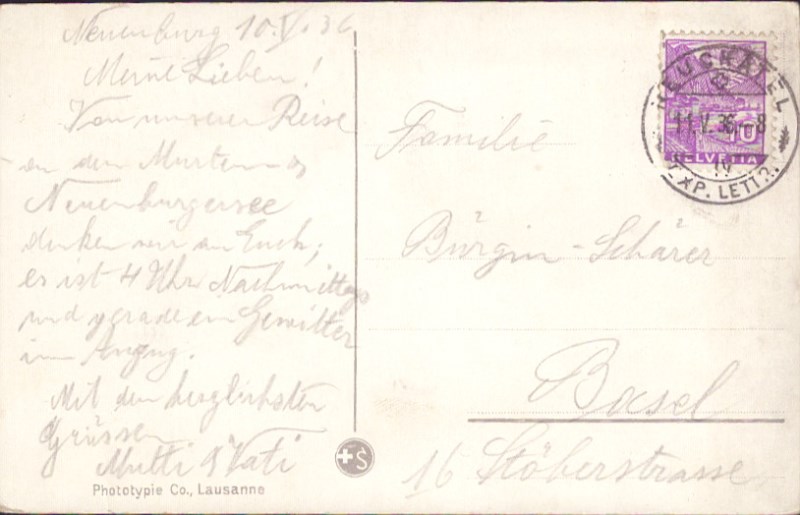 Neuenburg 10.V.36
Meine Lieben!
Von unserer Reise
an den Murten- &
Neuenburgersee
denken wir an Euch;
es ist 4 Uhr Nachmittags
und gerade ein Gewitter
im Anzug.
Mit den herzlichsten
Grüssen
Mutti & Vati
Phototypie Co., Lausanne
Familie
Bürgin-Schärer
Basel
16 Stöberstrasse
NEUCHATEL
11.V.36.-8
EXP. LETTR.
10
HELVETIA